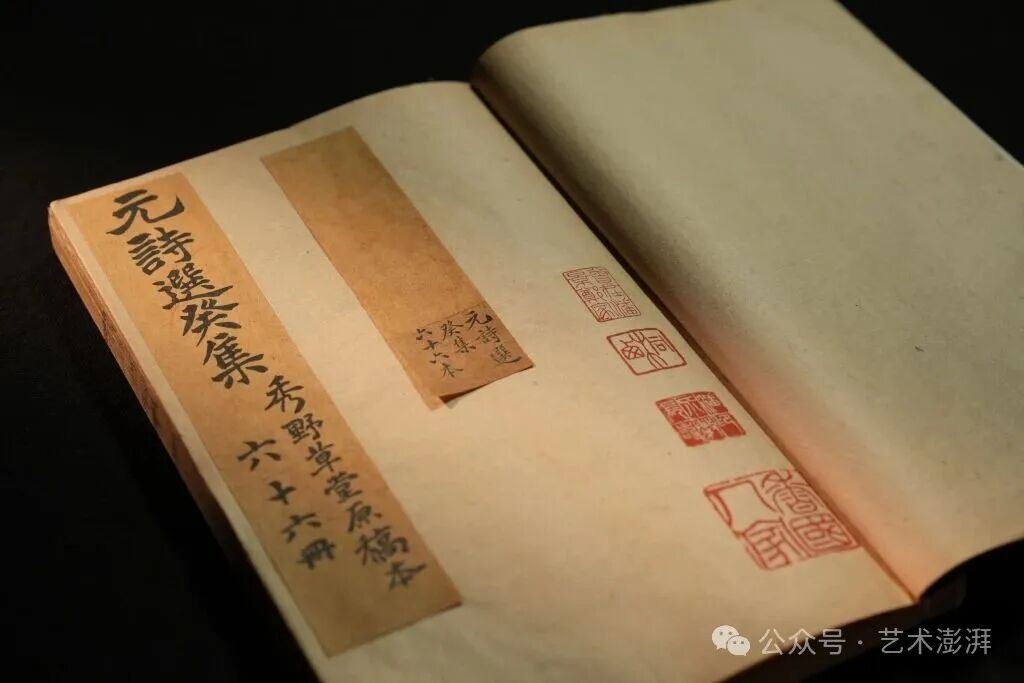 元詩選癸集
秀野草堂原稿本
六十六冊
元詩選
癸集
六十六本
公众号 · 艺术澎湃